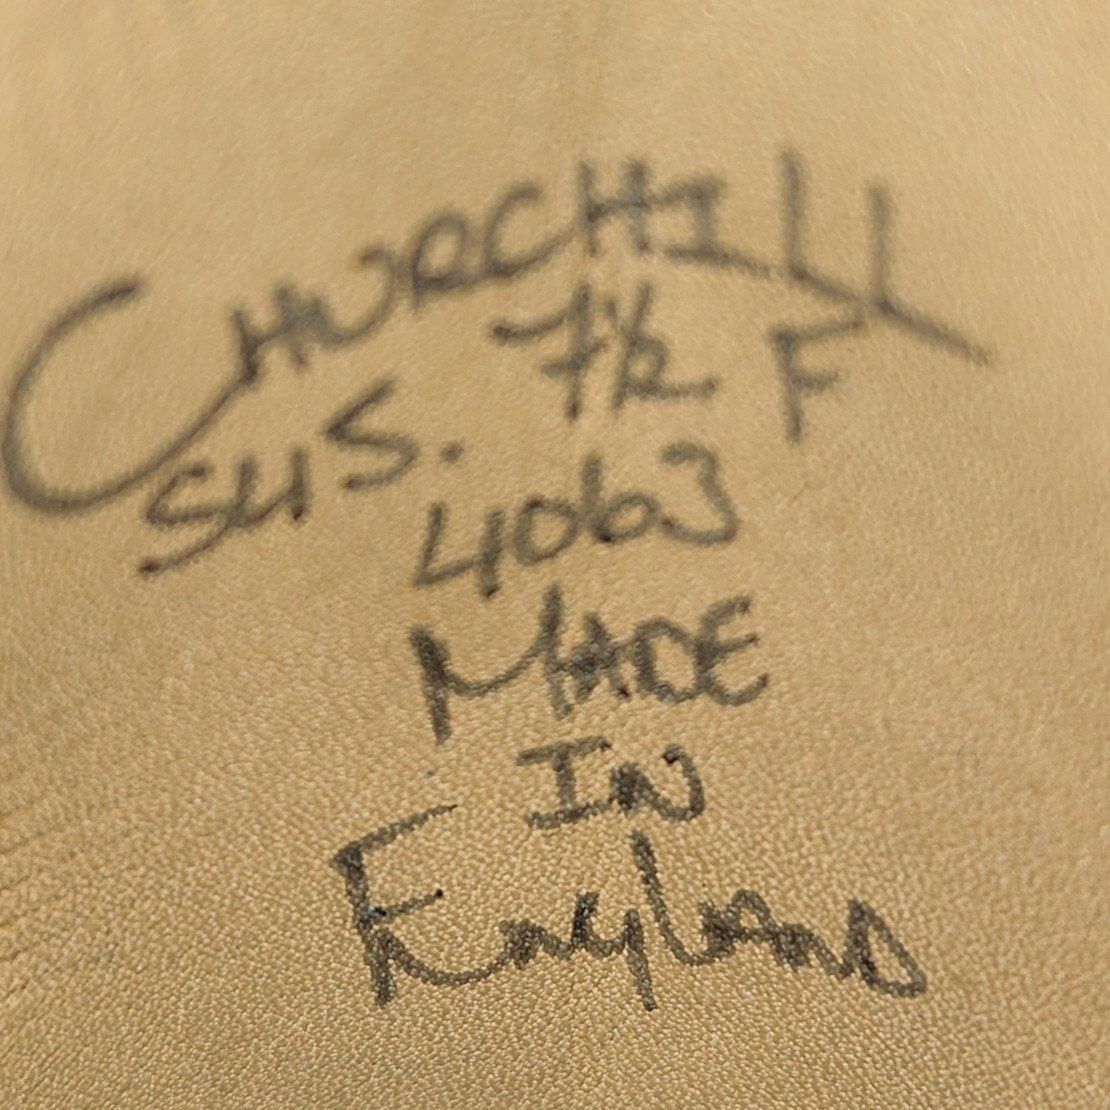 CHURCHILL
SUS. 7½ F
4063
MADE
IN
England